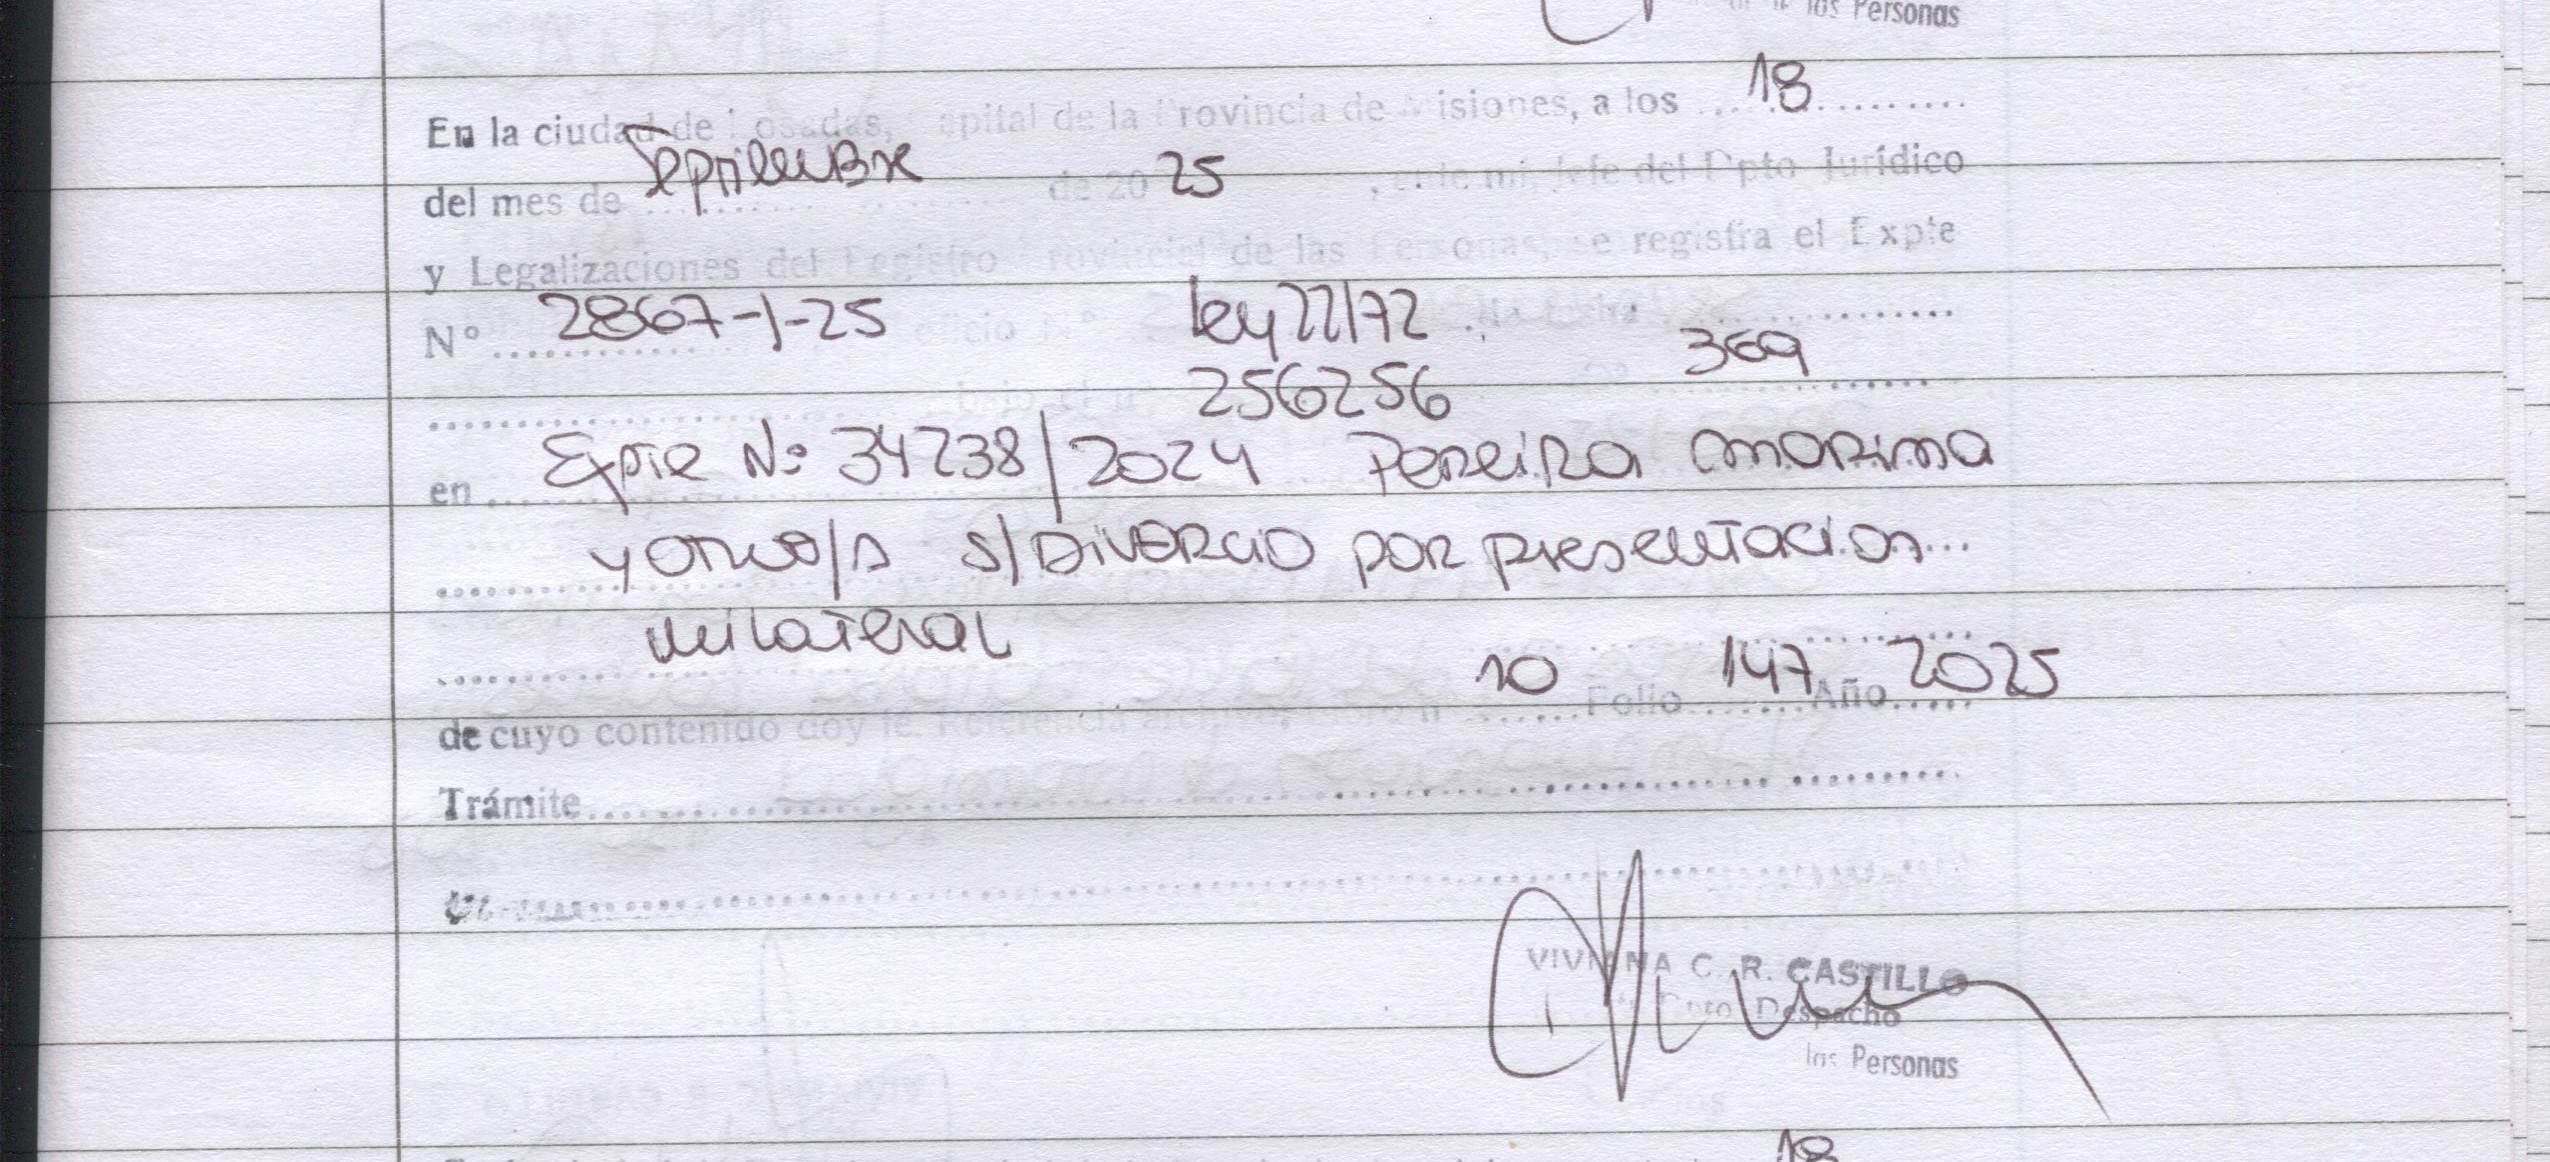 las Personas
En la ciudad de Posadas, Capital de la Provincia de Misiones, a los 18
del mes de Septiembre de 2025, ante mi, Jefe del Dpto Jurídico
y Legalizaciones del Registro Provincial de las Personas, se registra el Expte
Nº 2867-J-25 ley 22172
256256 369
en Expte Nº 34238/2024 Pereira Marina
y otro/s s/DIVORCIO por presentación
unilateral
10 147 2025
de cuyo contenido doy fe Referencia archivo, Folio Año
Trámite
VIVIANA C. R. CASTILLO
Dpto Despacho
las Personas
18